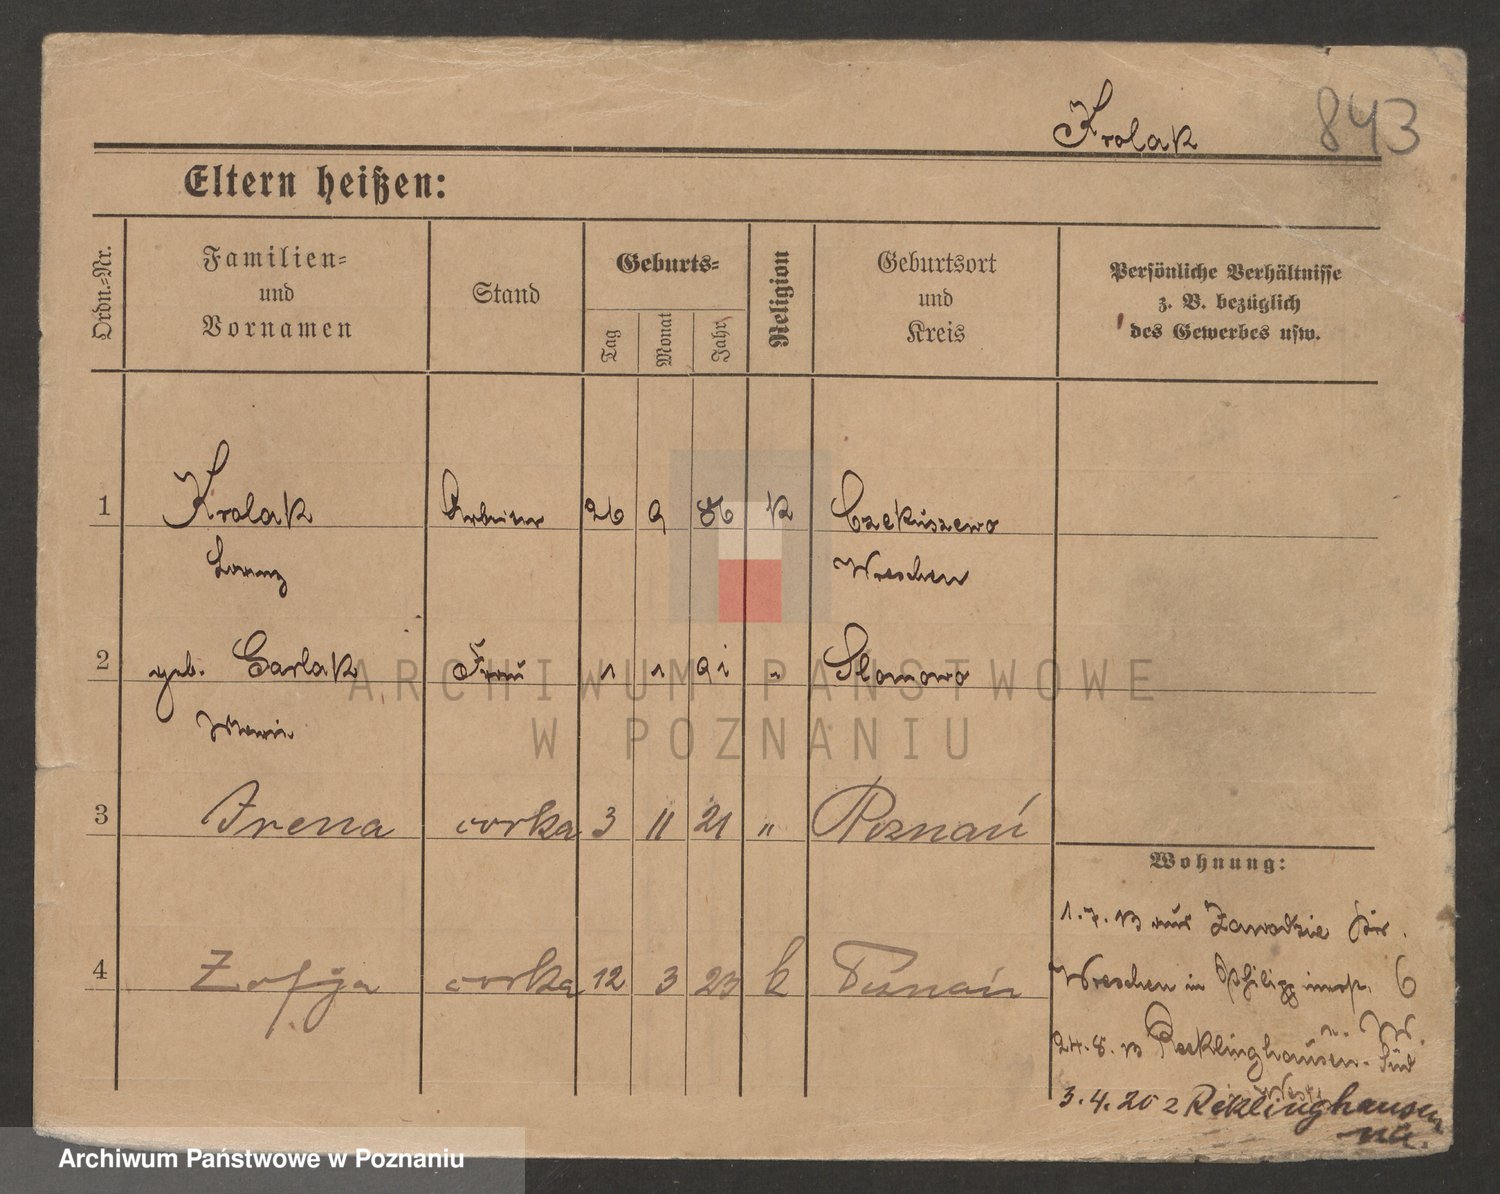 Krolak 843
Eltern heißen:
Ordn.-Nr.
Familien-
und
Vornamen
Stand
Geburts-
Tag
Monat
Jahr
Religion
Geburtsort
und
Kreis
Persönliche Verhältnisse
z. B. bezüglich
des Gewerbes usw.
1 Krolak Arbeiter 26 9 86 k
Wreschen
2 geb. Garlak Frau 1 1 91 " Slomowo
Maria
3 Irena corka 3 11 21 " Poznań
4 Zofja corka 12 3 23 k
Wohnung:
1.7.13 aus Zawodzie
Wreschen in 6
n. W.
24.8.13 Recklinghausen-Süd
3.4.20 z Reklinghausen
ARCHIWUM PAŃSTWOWE
W POZNANIU
Archiwum Państwowe w Poznaniu